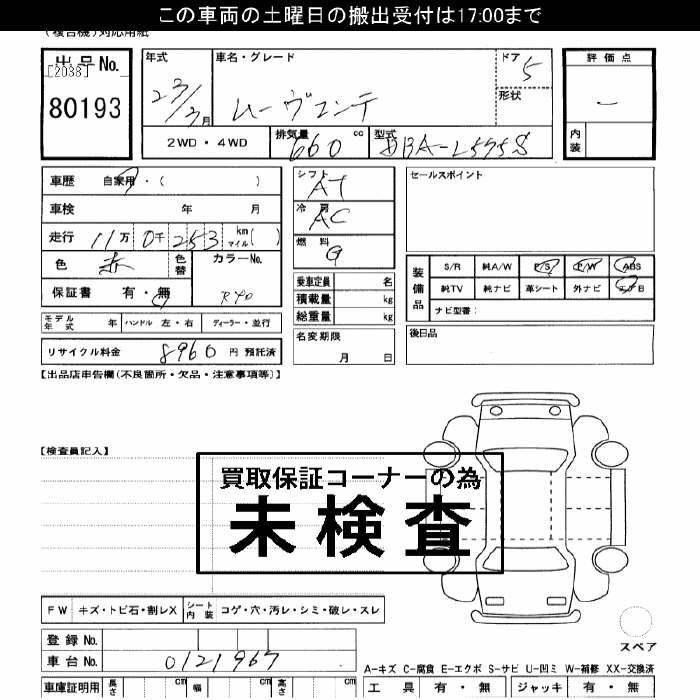 この車両の土曜日の搬出受付は17:00まで
(複合機)対応用紙
出品No. [2038] 80193
年式 23/3月 車名・グレード ムーヴコンテ ドア 5 形状
2WD・4WD 排気量 660 cc 型式 DBA-L575S
評価点 ー 内装
車歴 自家用・( )
車検 年 月
走行 11万 0千 253 km マイル( )
色 赤 色替 カラーNo. R40
保証書 有・無
モデル年式 年 ハンドル 左・右 ディーラー・並行
リサイクル料金 8960 円 預託済
シフト AT
冷房 AC
燃料 G
乗車定員 名
積載量 kg
総重量 kg
名変期限 月 日
セールスポイント
装備品 S/R 純A/W P/S P/W ABS
純TV 純ナビ 革シート 外ナビ エアB
ナビ型番:
後日品
【出品店申告欄(不良箇所・欠品・注意事項等)】
【検査員記入】
買取保証コーナーの為
未検査
FW キズ・トビ石・割レX シート内装 コゲ・穴・汚レ・シミ・破レ・スレ
登録No.
車台No. 0121967
車庫証明用 長さ cm 幅 cm 高さ cm
スペア
A-キズ C-腐食 E-エクボ S-サビ U-凹ミ W-補修 XX-交換済
工具 有・無 ジャッキ 有・無